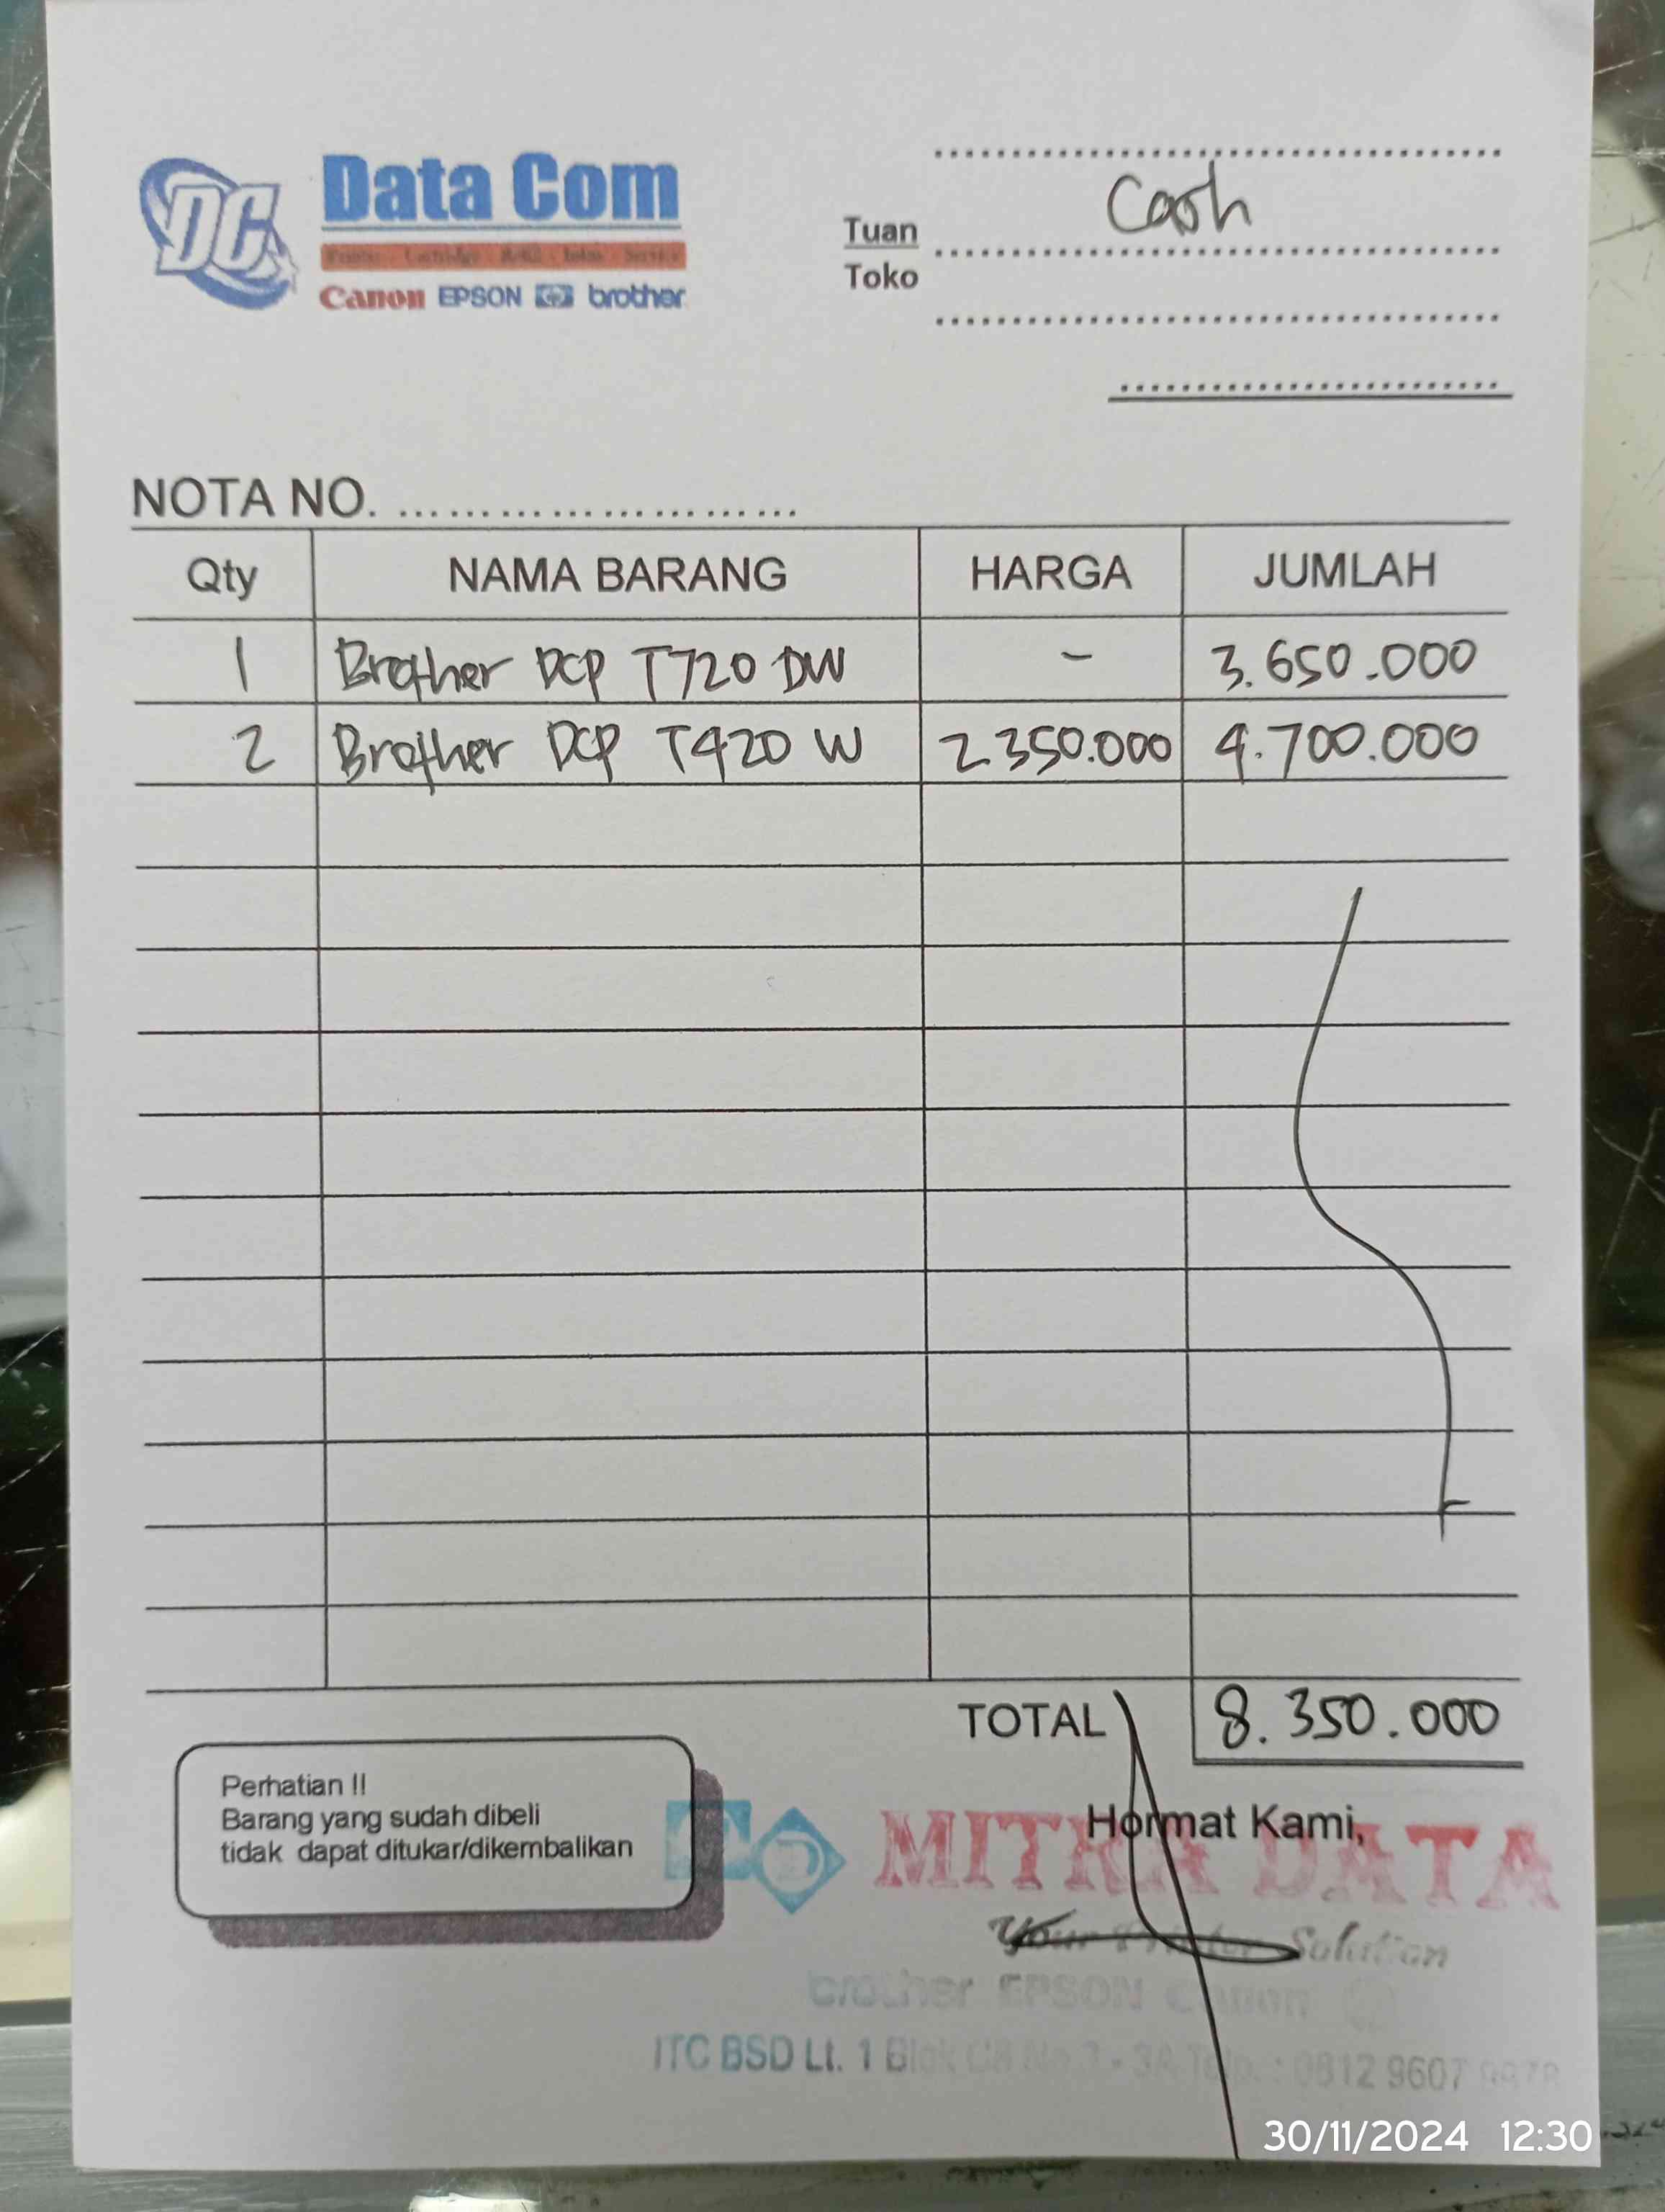 DC
Data Com
Printer Cartridge Refill Infus Service
Canon EPSON hp brother
Tuan
Toko
Cash
NOTA NO. ........................
Qty NAMA BARANG HARGA JUMLAH
1 Brother DCP T720 DW - 3.650.000
2 Brother DCP T420 W 2.350.000 4.700.000
TOTAL 8.350.000
Perhatian !!
Barang yang sudah dibeli
tidak dapat ditukar/dikembalikan
Hormat Kami,
MITRA DATA
Your Printer Solution
brother EPSON Canon
ITC BSD Lt. 1 Blok C8 No.3 - 3A Telp. : 0812 9607
30/11/2024 12:30